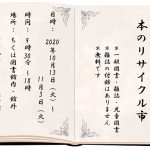 本のリサイクル市
＊一般図書・雑誌・児童図書
＊雑誌の付録はありません
＊無料です
日時：2020年10月13日（火）～
11月3日（火）
時間：9時30分～18時
場所：ちくほ図書館内・館外